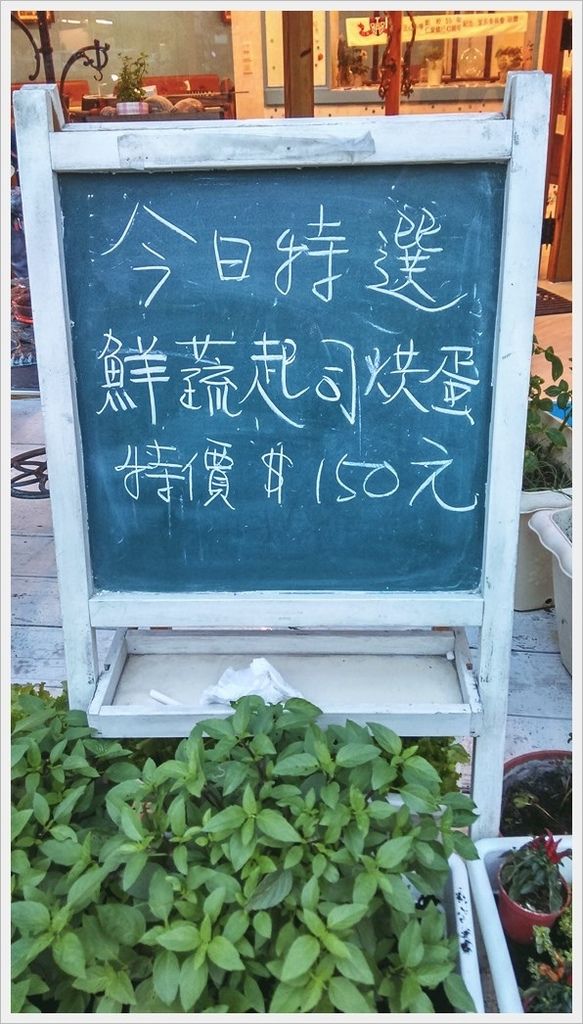 今日特選
鮮蔬起司烘蛋
特價$150元